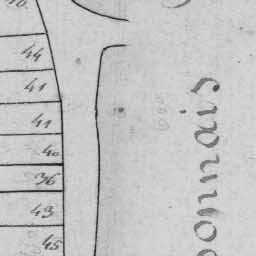 44
41
41
40
36
43
45
onnais